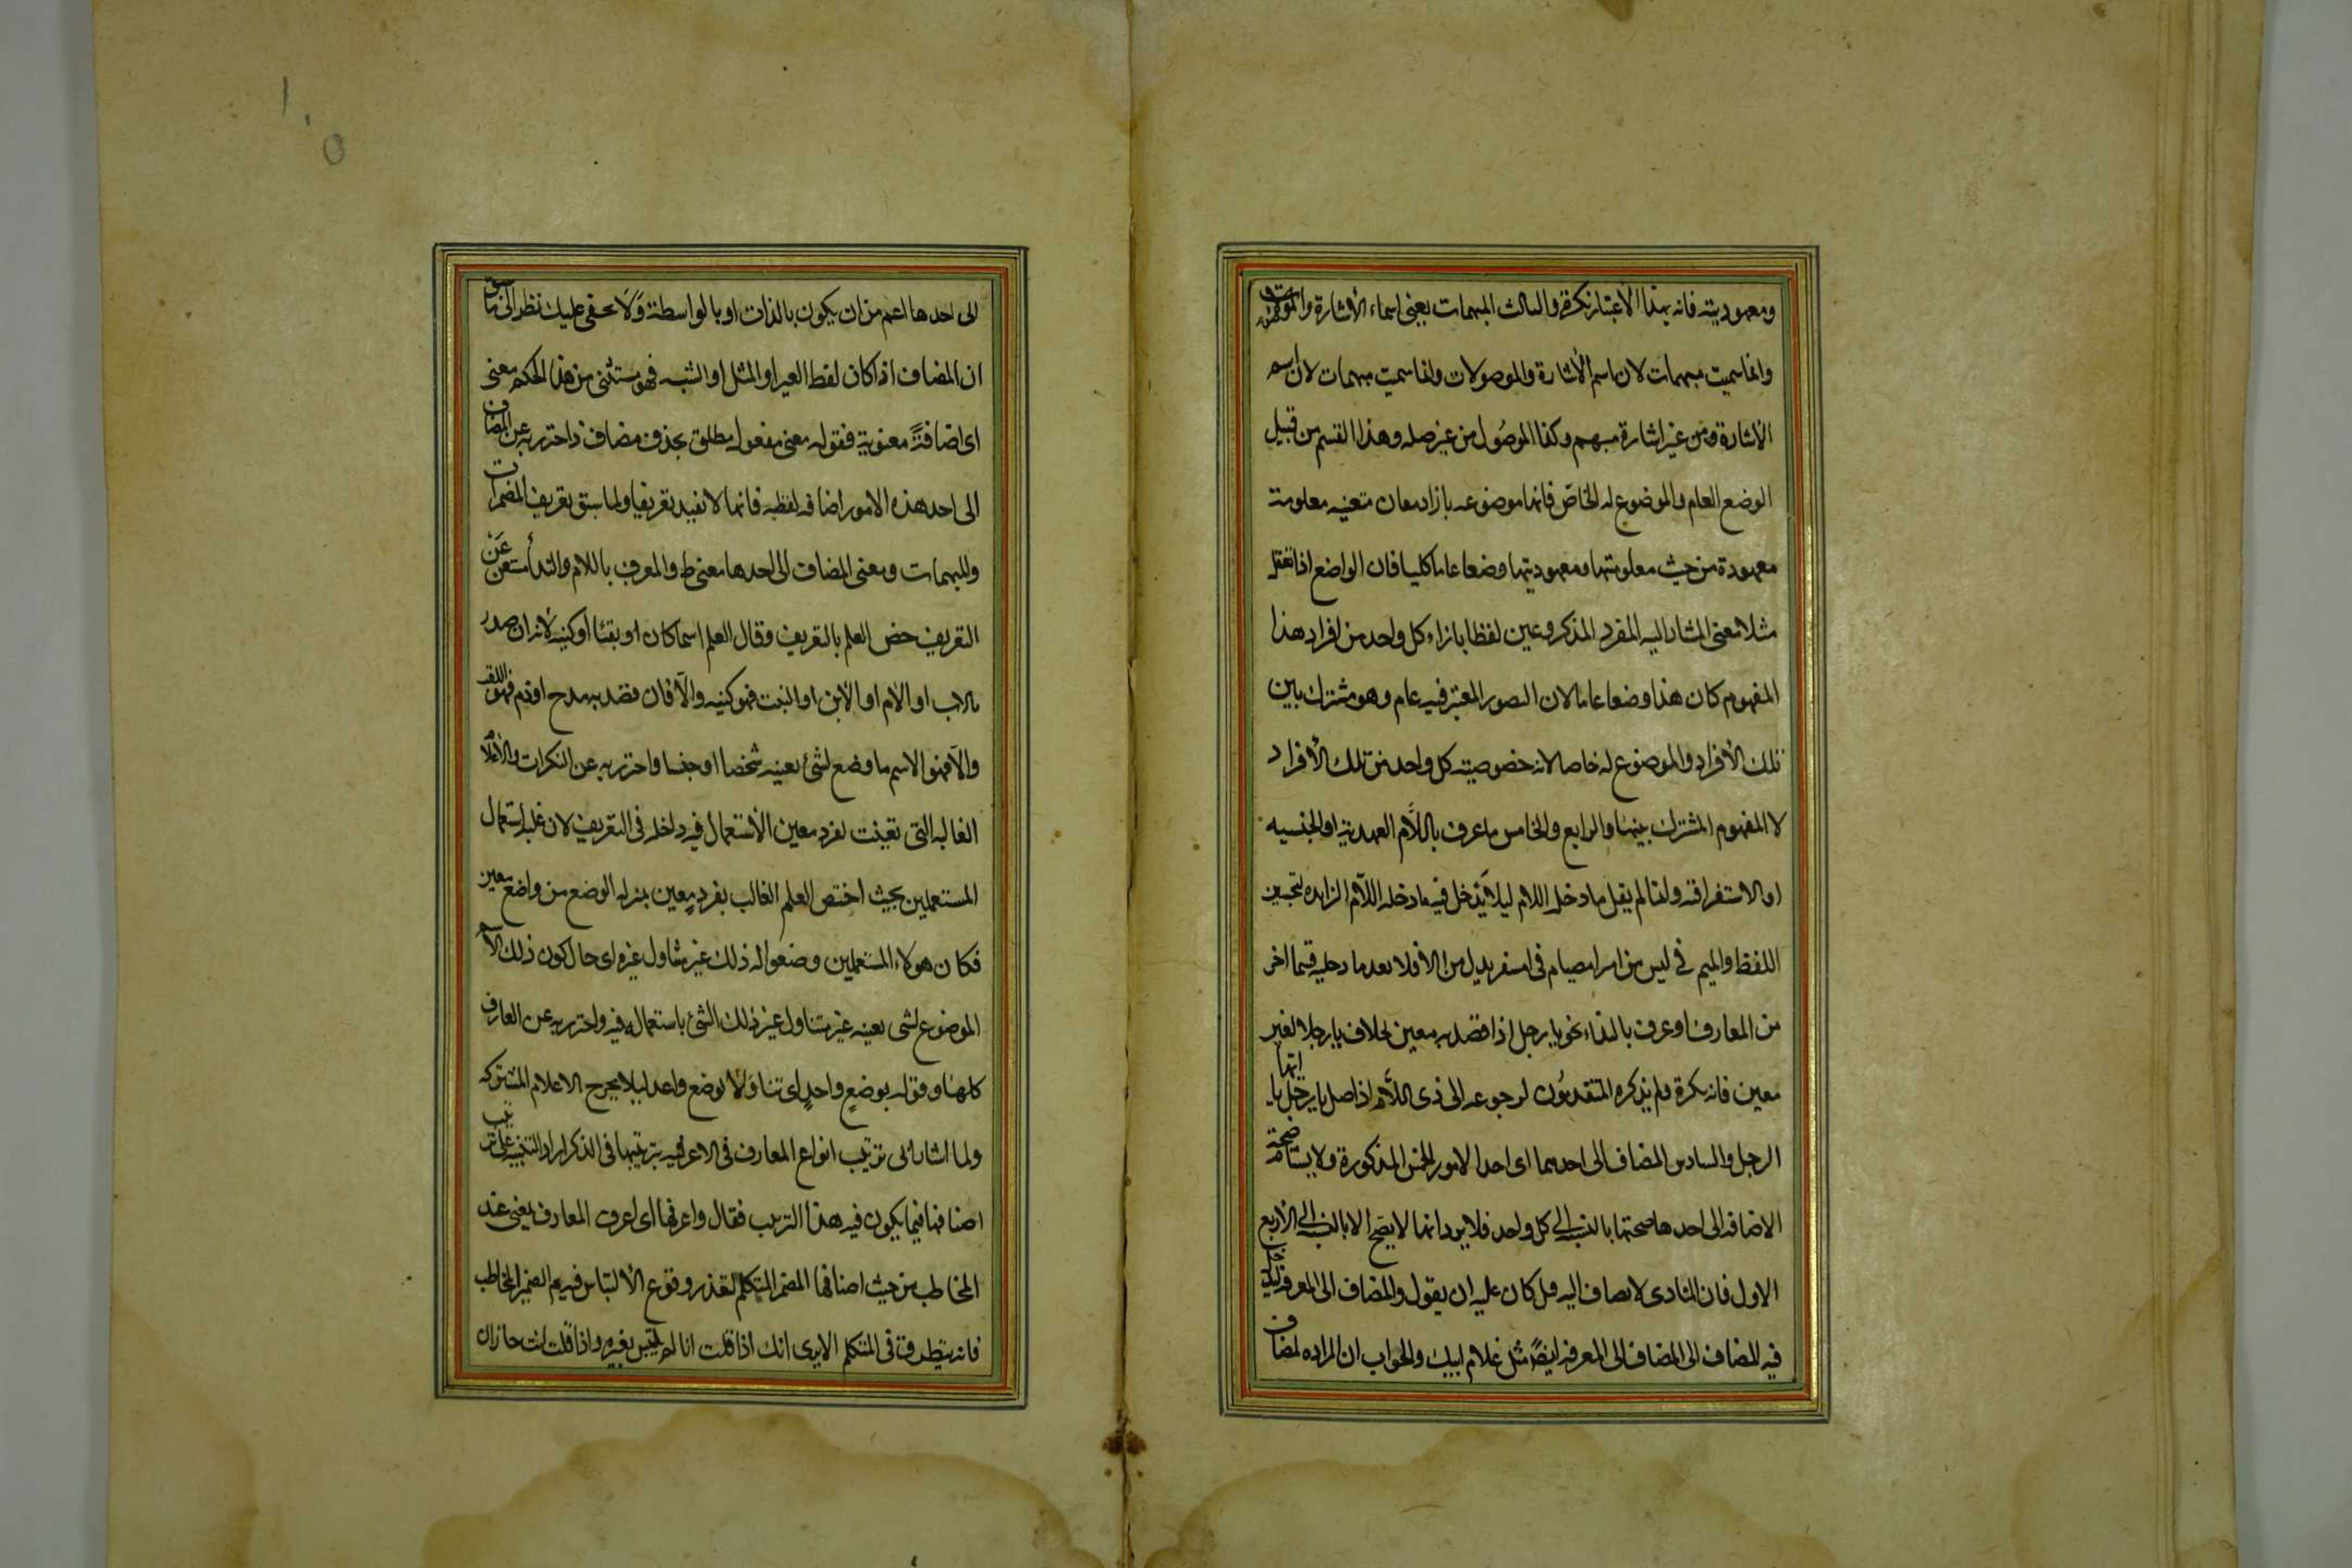 ومعهوديته فانه بهذا الاعتبار نكرة والثالث المبهمات يعنى اسماء الأشارة والموصولات
وانما سميت مبهمات لان اسم الأشارة والموصولات وانما سميت مبهمات لان اسم
الأشارة من غير اشارة مبهم وكذا الموصول من غير صله وهذا القسم من قبيل
الوضع العام والموضوع له الخاص فانها موضوعه بازاء معان متعينه معلومة
معهودة من حيث معلوميتها ومعهوديتها وضعا عاما كليا فان الواضع اذا تعقل
مثلا معنى المشار اليه المفرد المذكر وعين لفظا بازاء كل واحد من افراد هذا
المفهوم كان هذا وضعا عاما لان التصور المعتبر فيه عام وهو مشترك بين
تلك الأفراد والموضوع له خاصا لانه خصوصيته كل واحد من تلك الأفراد
لا المفهوم المشترك بينها والرابع والخامس ما عرف باللام العهدية او الجنسيه
او الاستغراقيه ولهذا لم يقل ما دخله اللام ليلا يدخل فيه ما دخله اللام الزايده لتحسين
اللفظ والميم في ليس من امبر امصيام فى امسفر بدل من اللام فلا يعد ما دخلته قسما اخر
من المعارف او عرف بالنداء نحو يا رجل اذا قصد به معين بخلاف يا رجلا لغير
معين فانه نكرة ولم يذكره المتقدمون لرجوعه الى ذى اللام اذ اصل يا رجل يا ايها
الرجل والسادس المضاف الى احدهما اى احد الامور الخمس المذكورة ولا يستلزم صحة
الاضافه الى احدها صحتها بالنسبه الى كل واحد فلا يرد انها لا يصح الا بالنسبه الى الأربع
الاول فان المنادى لا يضاف اليه قيل كان عليه ان يقول والمضاف الى المعرفه ليدخل
فيه المضاف الى المضاف الى المعرفه ايضًا مثل غلام ابيك والجواب ان المراد المضاف
الى احدها اعم من ان يكون بالذات او بالواسطة ولا يخفى عليك نظرا الى ما سبق
ان المضاف اذا كان لفظ الغير او المثل او الشبه فهو مستثنى من هذا الحكم معنى
اى اضافةً معنوية فقوله معنى مفعول مطلق بحذف مضاف واحترز به عن المضاف
الى احد هذه الامور اضافه لفظيه فانها لا تفيد تعريفا ولما سبق تعريف المضمرات
والمبهمات ومعنى المضاف الى احدها معنى ط والمعرف باللام والندا مستغن عن
التعريف خص العلم بالتعريف وقال العلم اسما كان او لقبا او كنيه لانه ان صدر
بالاب او الأم او الأبن او البنت فهو كنيه والا فان قصد به مدح او ذم فهو اللقب
والا فهو الاسم ما وضع لشئ بعينه شخصا او جنسا واحترز به عن النكرات والاعلام
الغالبه التى تعينت لفرد معين الأستعمال فيه داخله فى التعريف لان غلبه استعمال
المستعملين بحيث اختص العلم الغالب بفرد معين بمنزله الوضع من واضع معين
فكان هولاء المستعملين وضعوا له ذلك غير متناول غيره اى حال كون ذلك الاسم
الموضوع لشى بعينه غير متناول غير ذلك الشئ باستعماله فيه واحترز به عن المعارف
كلها وقوله بوضع واحد اى تناولا بوضع واحد ليلا يخرج الاعلام المشتركه
ولما اشار الى ترتيب انواع المعارف فى الاعرفيه بترتيبها فى الذكر اراد التنبيه على ترتيب
اصنافها فيما يكون فيه هذا الترتيب فقال واعرفها اى اعرف المعارف يعنى عند
المخاطب من حيث اصنافها المضمر المتكلم لتعذر وقوع الألتباس فيه ثم الضمير المخاطب
فانه يتطرق فى المتكلم الا يرى انك اذا قلت انا لم يلتبس بغيره واذا قلت انت جاز ان